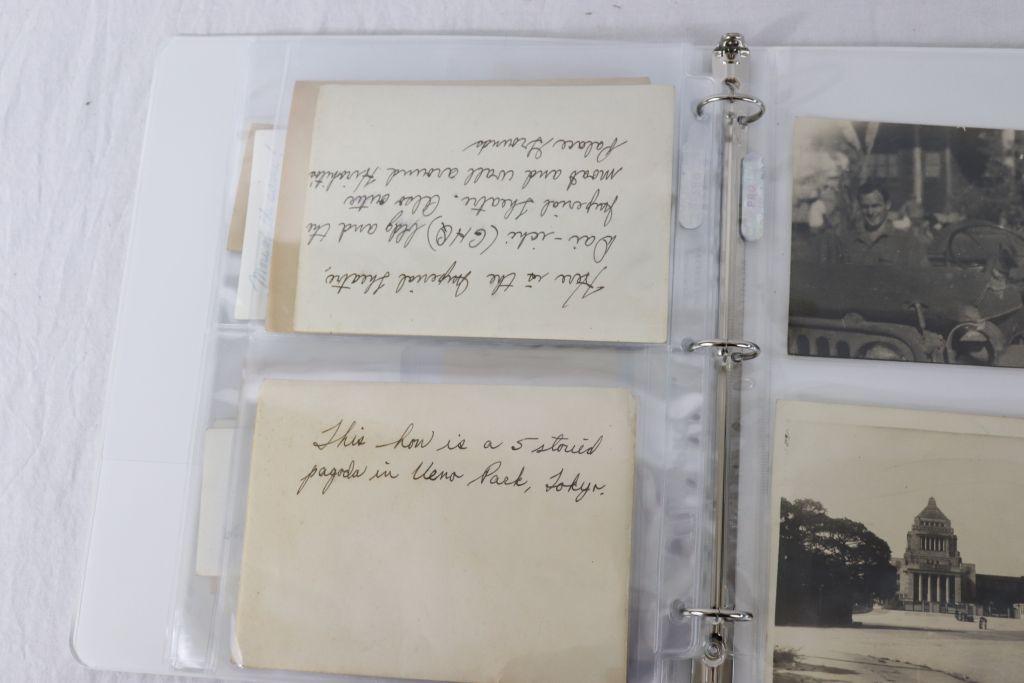 Here is the Imperial Theatre,
Dai-ichi (GHQ) bldg and the
Imperial Theatre. Also outer
moat and wall around Hirohito's
Palace Grounds
This how is a 5 storied
pagoda in Ueno Park, Tokyo.